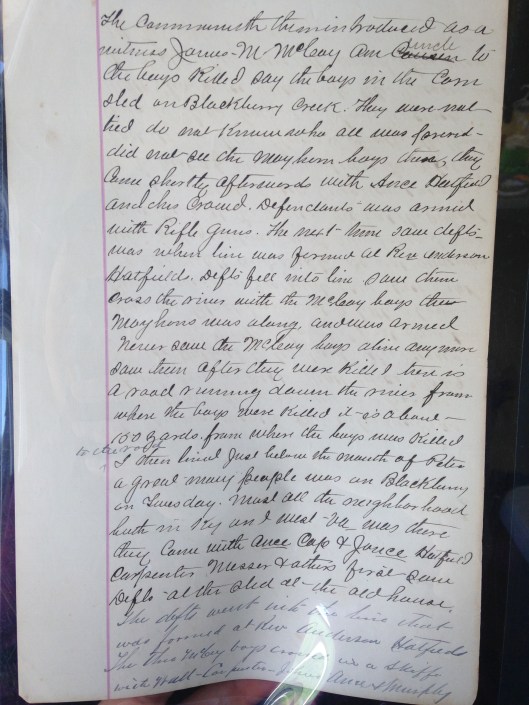 The Commonwealth then introduced as a
witness James M McCoy am uncle Cousin to
the boys killed saw the boys in the Corn
sled on Blackberry Creek. They were not
tied do not know who all was present
did not see the Mayhorn boys there, they
Came shortly afterwards with Ance Hatfield
and his Crowd. Defendants was armed
with Rifle Guns. The next time saw defts
was when line was formed at Rev Anderson
Hatfields. Defts fell into line saw them
Cross the river with the McCoy boys the
Mayhorns was along and was armed
Never saw the McCoy boys alive any more
saw them after they were killed there is
a road running down the river from
where the boys were killed it is about
150 yards from where the boys was killed
to the road
I then lived Just below the mouth of Peter
a great many people was on Blackberry
on Tuesday. Most all the neighborhood
both in Ky and West Va was there
they Came with Ance Cap & Jonce Hatfield
Carpenter Messer & others first saw
Defts at the sled at the old house.
The defts went into the line that
was formed at Rev Anderson Hatfields
The three McCoy boys crossed in a skiff
with Wall Carpenter Ance & Murphy